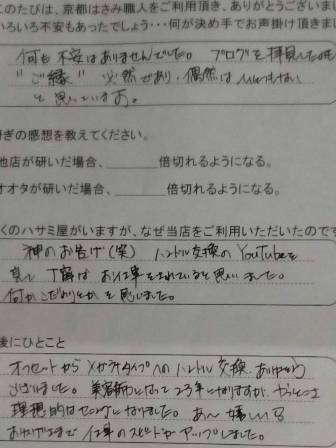 このたびは、京都はさみ職人をご利用頂き、ありがとうございま
いろいろ不安もあったでしょう…何が決め手でお声掛け頂きま
何も不安はありませんでした。ブログを拝見した時
"ご縁" 必然であり、偶然は
と思っています。
研ぎの感想を教えてください。
他店が研いだ場合、　　　倍切れるようになる。
オオタが研いだ場合、　　　倍切れるようになる。
くのハサミ屋がいますが、なぜ当店をご利用いただいたのです
神のお告げ(笑) ハンドル交換のYouTubeを
見て 丁寧な お仕事をされていると思いました。
何かこだわりとかを思いました。
後にひとこと
オフセットからメガネタイプへのハンドル交換 ありがとう
ございました。美容師になって23年になりますが、やっと
理想的な になりました。あ〜嬉しい
おかげさまで 仕事のスピードがアップしました。